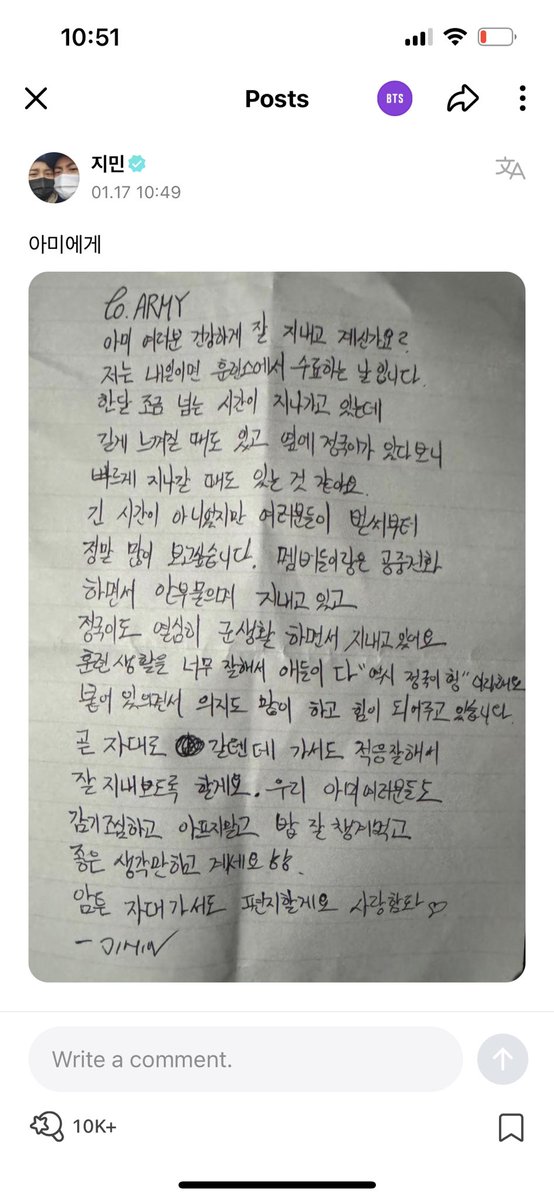 10:51
Posts
BTS
지민
01.17 10:49
아미에게
To. ARMY
아미 여러분 건강하게 잘 지내고 계신가요?
저는 내일이면 훈련소에서 수료하는 날입니다.
한달 조금 넘는 시간이 지나가고 있는데
길게 느껴질 때도 있고 옆에 정국이가 있다보니
빠르게 지나갈 때도 있는 것 같아요.
긴 시간이 아니었지만 여러분들이 벌써부터
정말 많이 보고싶습니다. 멤버들이랑은 공중전화
하면서 안부물으며 지내고 있고
정국이도 열심히 군생활 하면서 지내고 있어요
훈련 생활을 너무 잘해서 애들이 다 "역시 정국이 형" 이라해요
붙어 있으면서 의지도 많이 하고 힘이 되어주고 있습니다.
곧 자대로 갈텐데 가서도 적응잘해서
잘 지내보도록 할게요. 우리 아미여러분들도
감기조심하고 아프지말고 밥 잘 챙겨먹고
좋은 생각만하고 계세요
암튼 자대가서도 편지할게요 사랑합니다♡
- JIMIN
Write a comment.
10K+